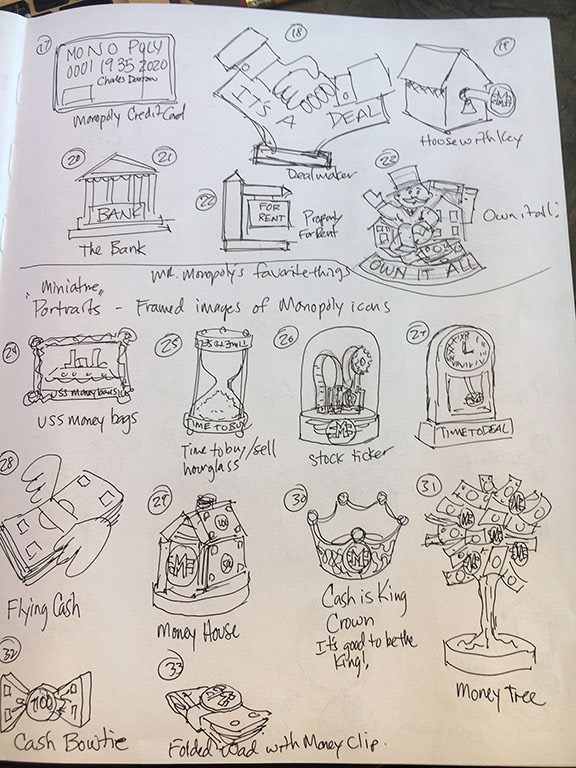 17
MONOPOLY
0001 1935 2020
Charles Darrow
Monopoly Credit Card
18
IT'S A DEAL
Dealmaker
19
M
House with Key
20
21
BANK
The Bank
22
FOR
RENT
Property
For Rent
23
OWN IT ALL
Own it all!
Mr. Monopoly's favorite things
"Miniature"
Portraits - Framed images of Monopoly icons
24
USS money bags
USS money bags
25
TIME TO BUY
Time to buy/sell
hourglass
26
M
Stock ticker
27
TIME TO DEAL
28
Flying Cash
29
M
Money House
30
M
Cash is King
Crown
It's good to be the
King!
31
M
Money Tree
32
100
Cash Bowtie
33
Folded wad with Money Clip.